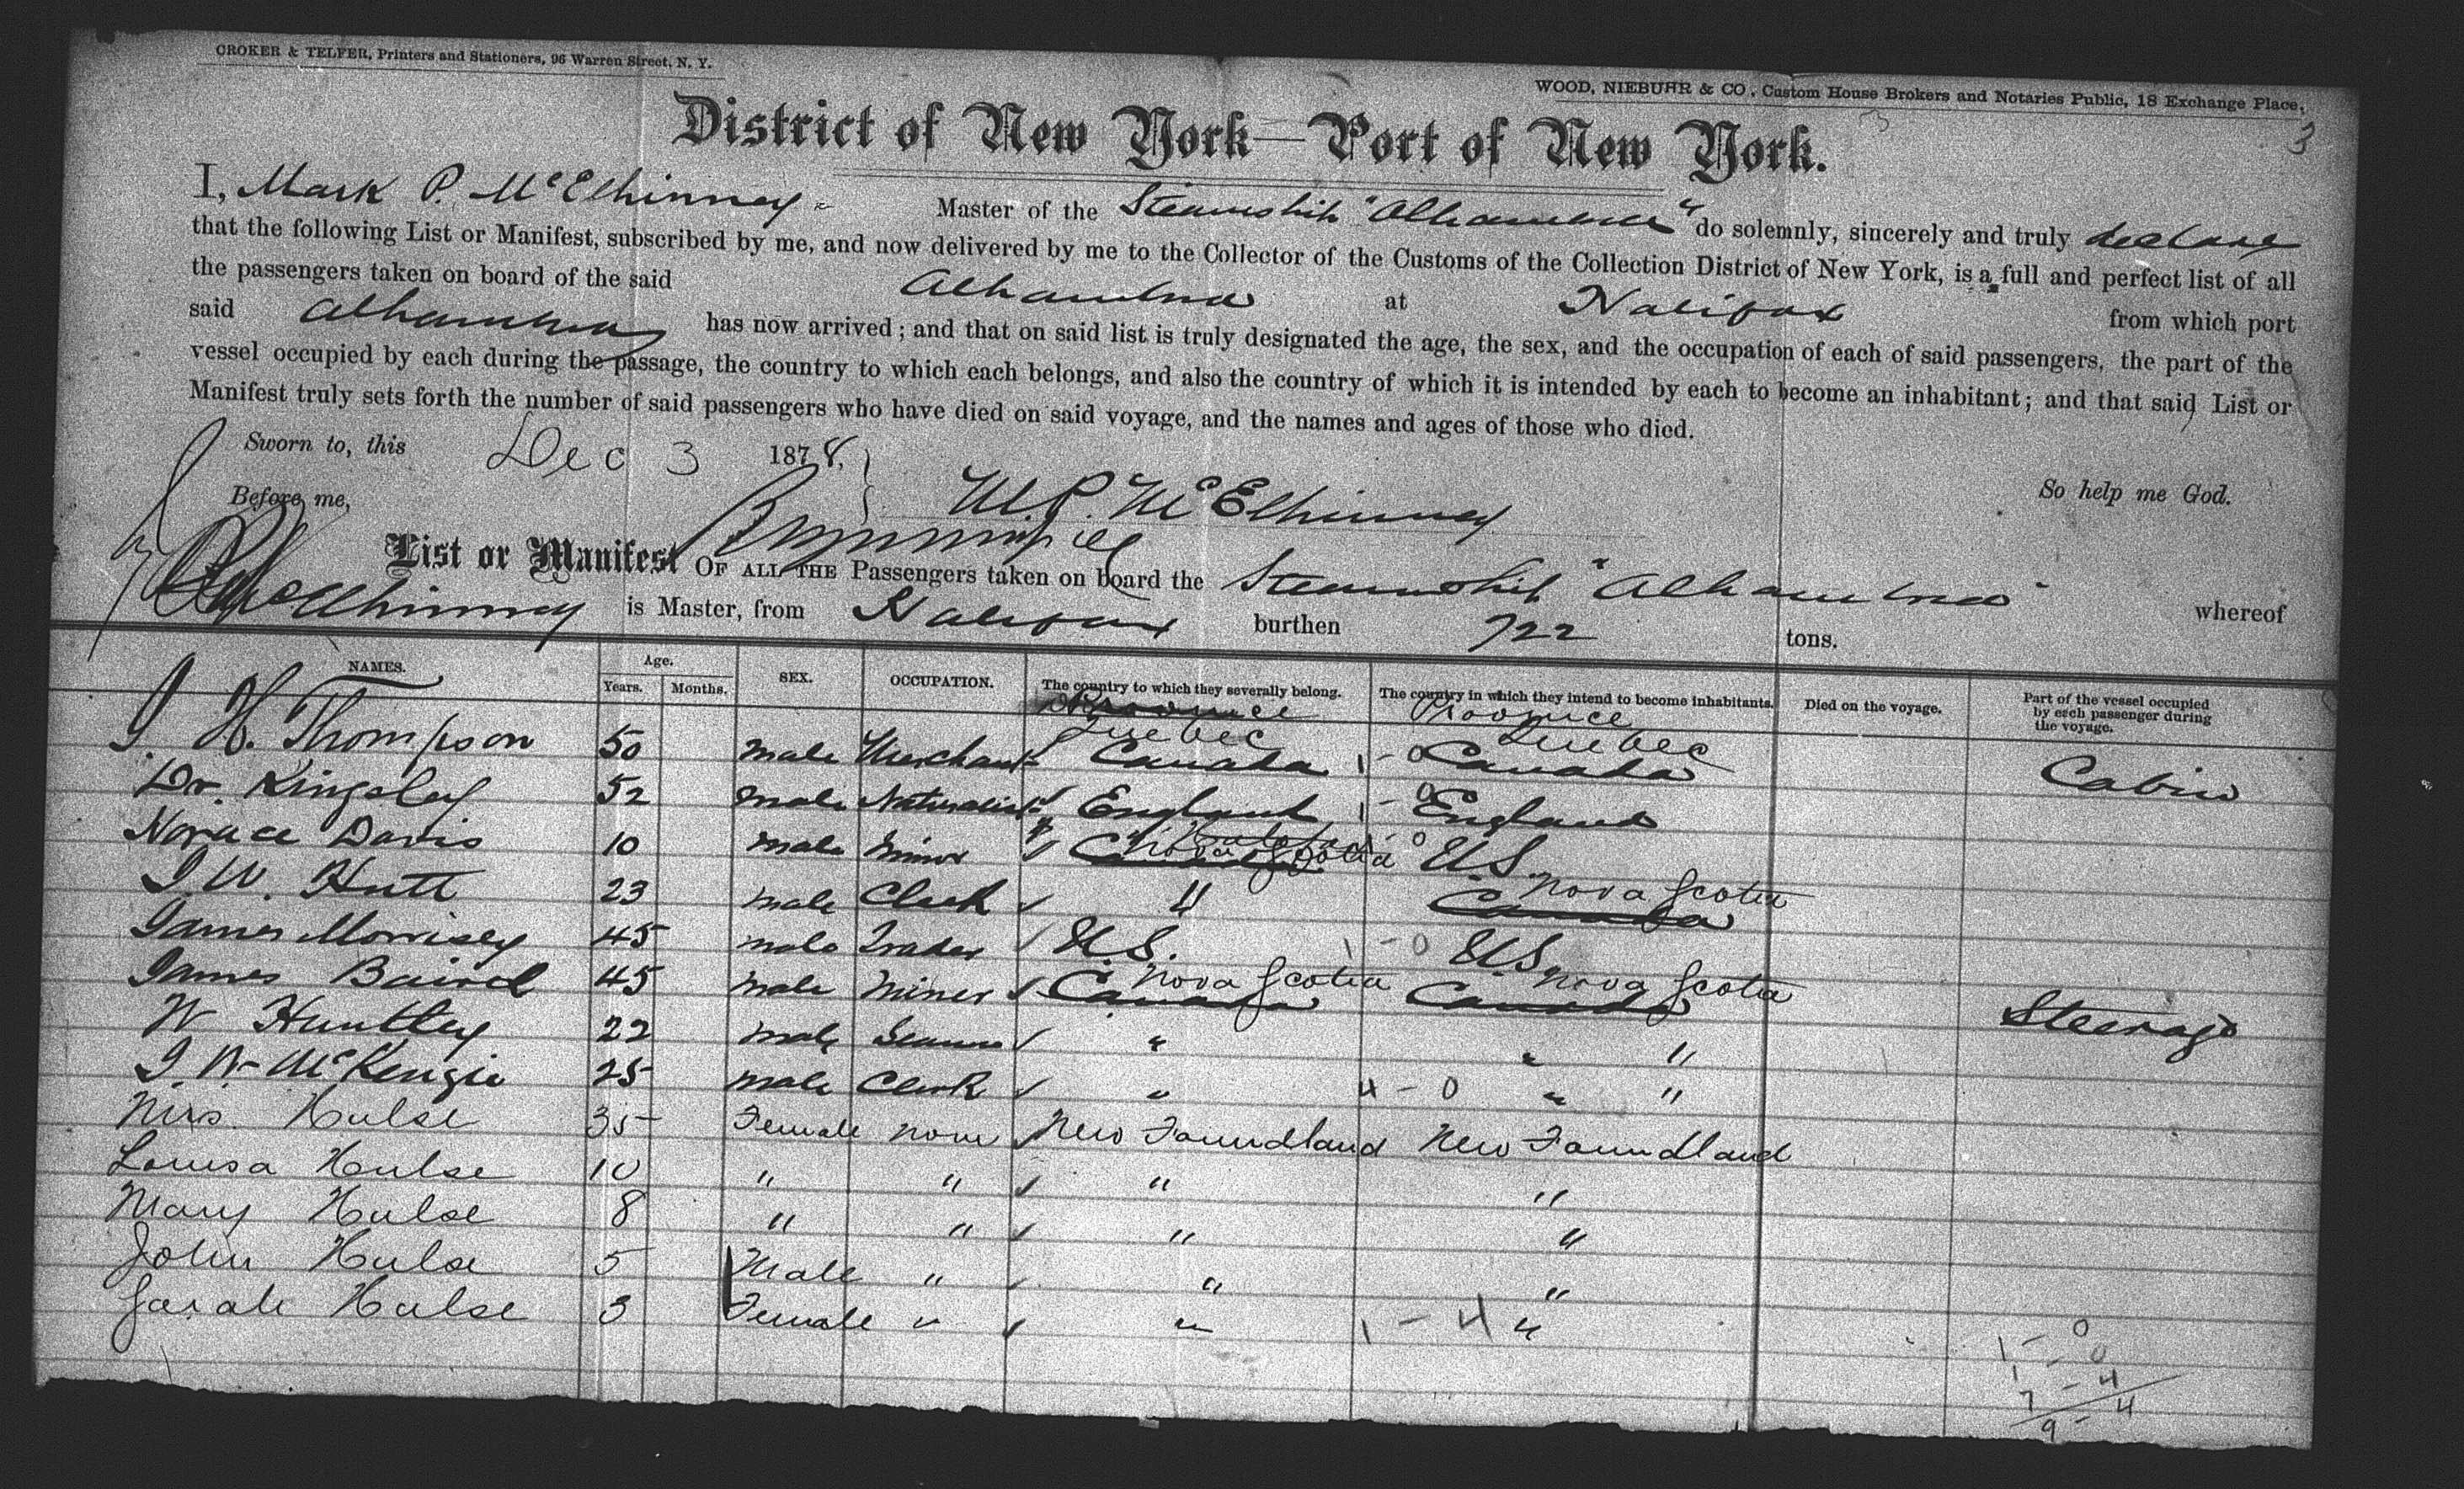 CROKER & TELFER, Printers and Stationers, 96 Warren Street, N. Y.
WOOD, NIEBUHR & CO., Custom House Brokers and Notaries Public, 18 Exchange Place,
3
District of New York—Port of New York.
I, Mark P. McElhinney Master of the Steamship "Alhambra" do solemnly, sincerely and truly declare
that the following List or Manifest, subscribed by me, and now delivered by me to the Collector of the Customs of the Collection District of New York, is a full and perfect list of all
the passengers taken on board of the said Alhambra at Halifax from which port
said Alhambra has now arrived; and that on said list is truly designated the age, the sex, and the occupation of each of said passengers, the part of the
vessel occupied by each during the passage, the country to which each belongs, and also the country of which it is intended by each to become an inhabitant; and that said List or
Manifest truly sets forth the number of said passengers who have died on said voyage, and the names and ages of those who died.
Sworn to, this Dec 3 1878,
So help me God.
Before me,
M. P. McElhinney
List or Manifest OF ALL THE Passengers taken on board the Steamship "Alhambra" whereof
McElhinney is Master, from Halifax burthen 722 tons.
NAMES. Age. Years. Months. SEX. OCCUPATION. The country to which they severally belong. The country in which they intend to become inhabitants. Died on the voyage. Part of the vessel occupied by each passenger during the voyage.
Province Province
Quebec Quebec
J. H. Thompson 50 male Merchant Canada 1 - 0 Canada Cabin
Dr. Kingsley 52 male Naturalist England 1 - 0 England
Horace Davis 10 male Minor Canada Nova Scotia 0 U.S.
J. W. Hutt 23 male Clerk " Canada Nova Scotia
James Morrisey 45 male Trader U.S. 1 - 0 U.S.
James Baird 45 male Miner Canada Nova Scotia Canada Nova Scotia Steerage
W Huntley 22 male Seaman " " "
J. W. McKenzie 25 male Clerk " 4 - 0 " "
Mrs. Hulse 35 Female none New Foundland New Foundland
Louisa Hulse 10 " " " "
Mary Hulse 8 " " " "
John Hulse 5 Male " " "
Sarah Hulse 3 Female " " 1 - 4 "
1 - 0
1 - 0
7 - 4
9 - 4